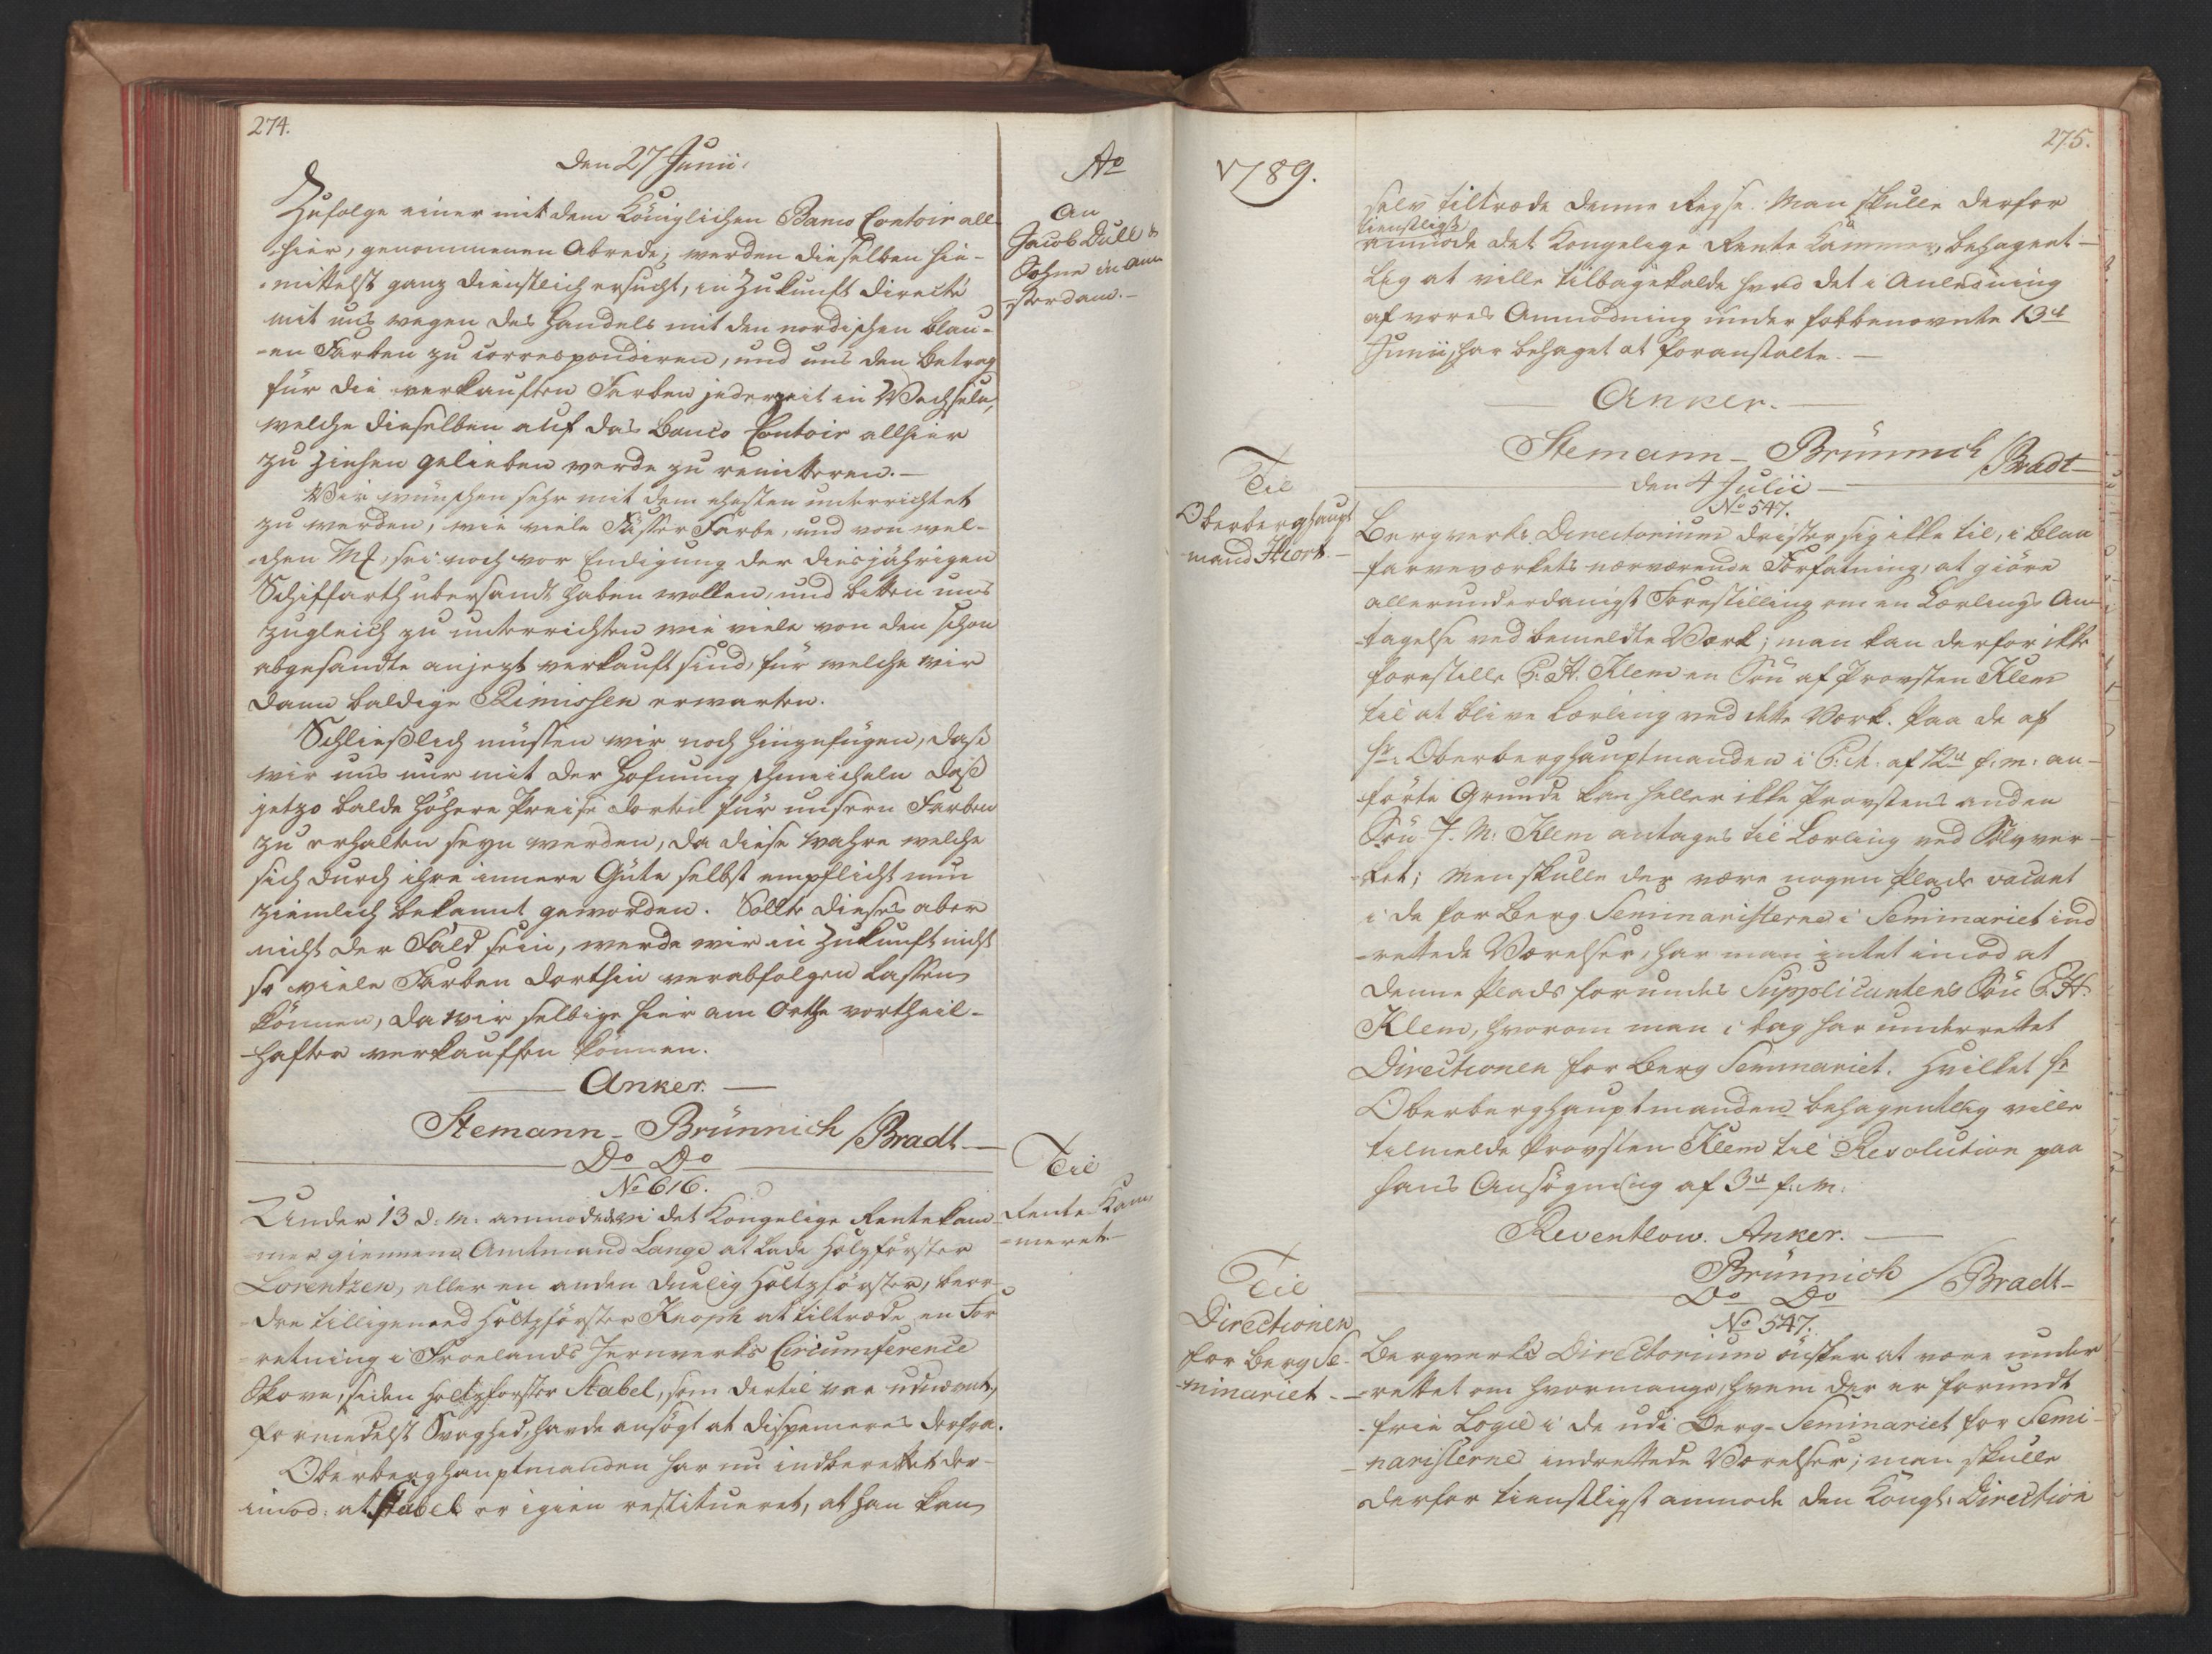 274.
Den 27 Junii.
Ao
An
Jacob Dull &
Sohne in Am-
-sterdam.-
Zufolge einer mit dem Königlichen Banco Contoir all-
-hier, genommenen Abrede, werden dieselben hie-
-mittelst ganz dienstlich ersucht, in Zukunft directé
mit uns wegen des Handels mit den nordischen blau-
-en Farben zu correspondiren, und uns den Betrag
für die verkauften Farben jederzeit in Wechseln,
welche dieselben auf das Banco Contoir allhier
zu ziehen gelieben werde zu remitteren.-
Wir wünschen sehr mit dem ehesten unterrichtet
zu werden, wie viele Fässer Farbe, und von wel-
-chen , sei noch vor Endigung der diesjährigen
Schiffarth übersandt haben wollen, und bitten uns
zugleich zu unterrichten wie viele von den schon
abgesandte anjezt verkauft sind, für welche wir
dann baldige Rimissen erwarten.
Schließlich müssen wir noch hinzufügen, daß
wir uns nur mit der Hofnung schmeicheln daß
jetzo balde höhere Preise dorten für unsern Farben
zu erhalten seyn werden, da diese Wahre welche
sich durch ihre innere Güte selbst empflicht nun
ziemlich bekannt geworden. Sollte dieses aber
nicht der Fald sein, werde wir in Zukunft nicht
so viele Farben dorthin verabfolgen lassen
können, da wir selbige hier am Orthe vortheil-
-hafter verkauffen können.
Anker.
Stemann - Brünnich /Bradt.-
Do Do
No 616.
Til
Rente-Kam-
-meret-
Under 13 d: M: anmodede vi det Kongelige Rentekam-
-mer giennem Amtmand Lange at lade Holzförster
Lorentzen, eller en anden duelig Holtzförster, beor-
-dre tilligemed Holtzförster Knoph at tiltræde en For-
-retning i Froelands Jernverks Circumference
Skove, siden Holtzforster Stabel, som dertil var udnævnt,
formedelst Svaghed, havde ansøgt at dispenseres derfra.
Oberberghauptmanden har nu indberettet der-
imod: at Stabel er igien restitueret, at han kan
1789.
275.
selv tiltræde denne Reyse. Man skulle derfor
tienstligst
anmode det Kongelige Rente Kammer, behagent-
lig at ville tilbagekalde hvad det i Anledning
af vores Anmodning under forbenævnte 13de
Junii, har behaget at foranstalte.-
Anker.
Stemann - Brünnich /Bradt-
Den 4 Julii
No 547.
Til
Oberberghaupt
mand Hiort.-
Bergverks Directorium drister sig ikke til, i Blaa
farveværkets nærværende Forfatning, at giöre
allerunderdanigst Forestilling om en Lærlings An-
-tagelse ved bemeldte Værk; man kan derfor ikke
forestille P. H. Klem en Sön af Provsten Klem
til at blive Lærling ved dette Værk. Paa de af
Hr: Oberberghauptmanden i P: M: af 12te f: m: an-
-förte Grunde kan heller ikke Provstens anden
Sön J. M: Klem antages til Lærling ved Sölvver-
-ket; men skulle der være nogen Plads vacant
i de for Berg Seminaristerne i Seminariet ind
-rettede Værelser, har man intet imod at
denne Plads forundes Supplicantens Sön P. H.
Klem, hvorom man i dag har underrettet
Directionen for Berg Seminariet. Hvilket Hr
Oberberghauptmanden behagentlig ville
tilmelde Provsten Klem til Resolution paa
hans Ansögning af 3de f: m:
Reventlow. Anker.
Brünnich /Bradt-
Do Do
No 547.
Til
Directionen
for Berg Se-
-minariet.-
Bergverks Directorium önsker at være under
-rettet om hvormange, hvem der er forundt
-frie Logie i de udi Berg-Seminariet for Semi-
-naristerne indrettede Værelser; man skulle
derfor tienstligst anmode den Kongl: Direction